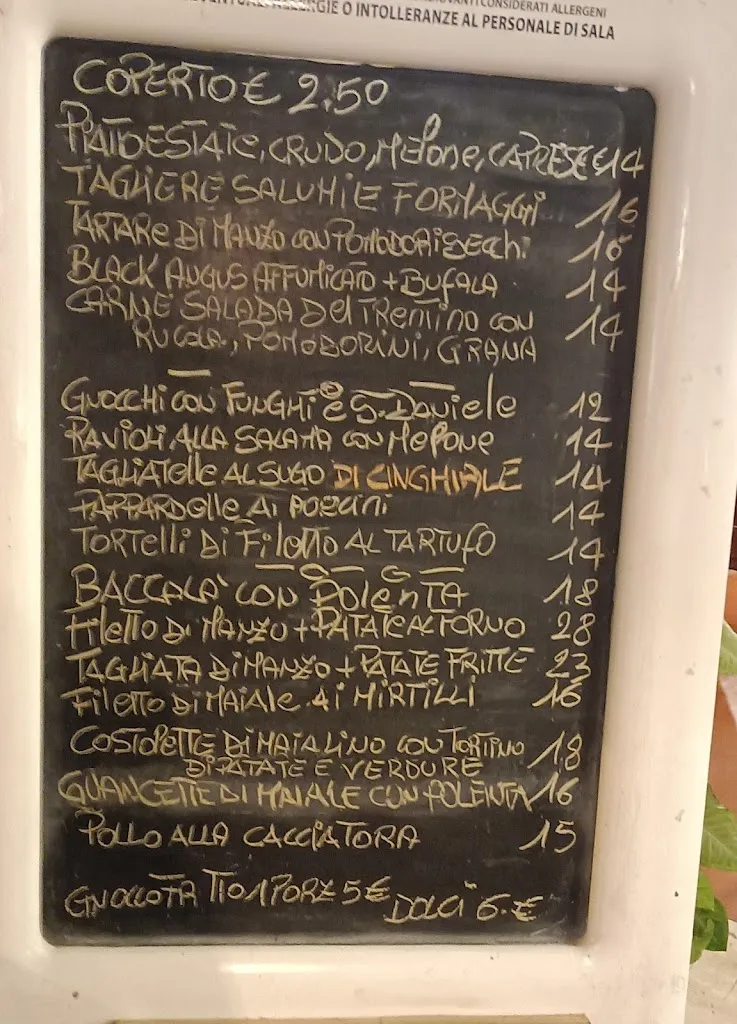 CONSIDERATI ALLERGENI
O INTOLLERANZE AL PERSONALE DI SALA
COPERTO € 2.50
PIATTO ESTATE, CRUDO, MELONE, CAPRESE € 14
TAGLIERE SALUMI E FORMAGGI 16
TARTARE DI MANZO CON POMODORI SECCHI 16
BLACK ANGUS AFFUMICATO + BUFALA 14
CARNE SALADA DEL TRENTINO CON 14
RUCOLA, POMODORINI, GRANA
GNOCCHI CON FUNGHI e S. DANIELE 12
RAVIOLI ALLA SALAMA CON MELONE 14
TAGLIATELLE AL SUGO DI CINGHIALE 14
PAPPARDELLE AI PORCINI 14
TORTELLI DI FILETTO AL TARTUFO 14
BACCALA' CON POLENTA 18
FILETTO DI MANZO + PATATE AL FORNO 28
TAGLIATA DI MANZO + PATATE FRITTE 23
FILETTO DI MAIALE AI MIRTILLI 16
COSTOLETTE DI MAIALINO CON TORTINO 18
DI PATATE E VERDURE
GUANCETTE DI MAIALE CON POLENTA 16
POLLO ALLA CACCIATORA 15
GNOCCO FRITTO 1 PORZ 5 € DOLCI 6.€